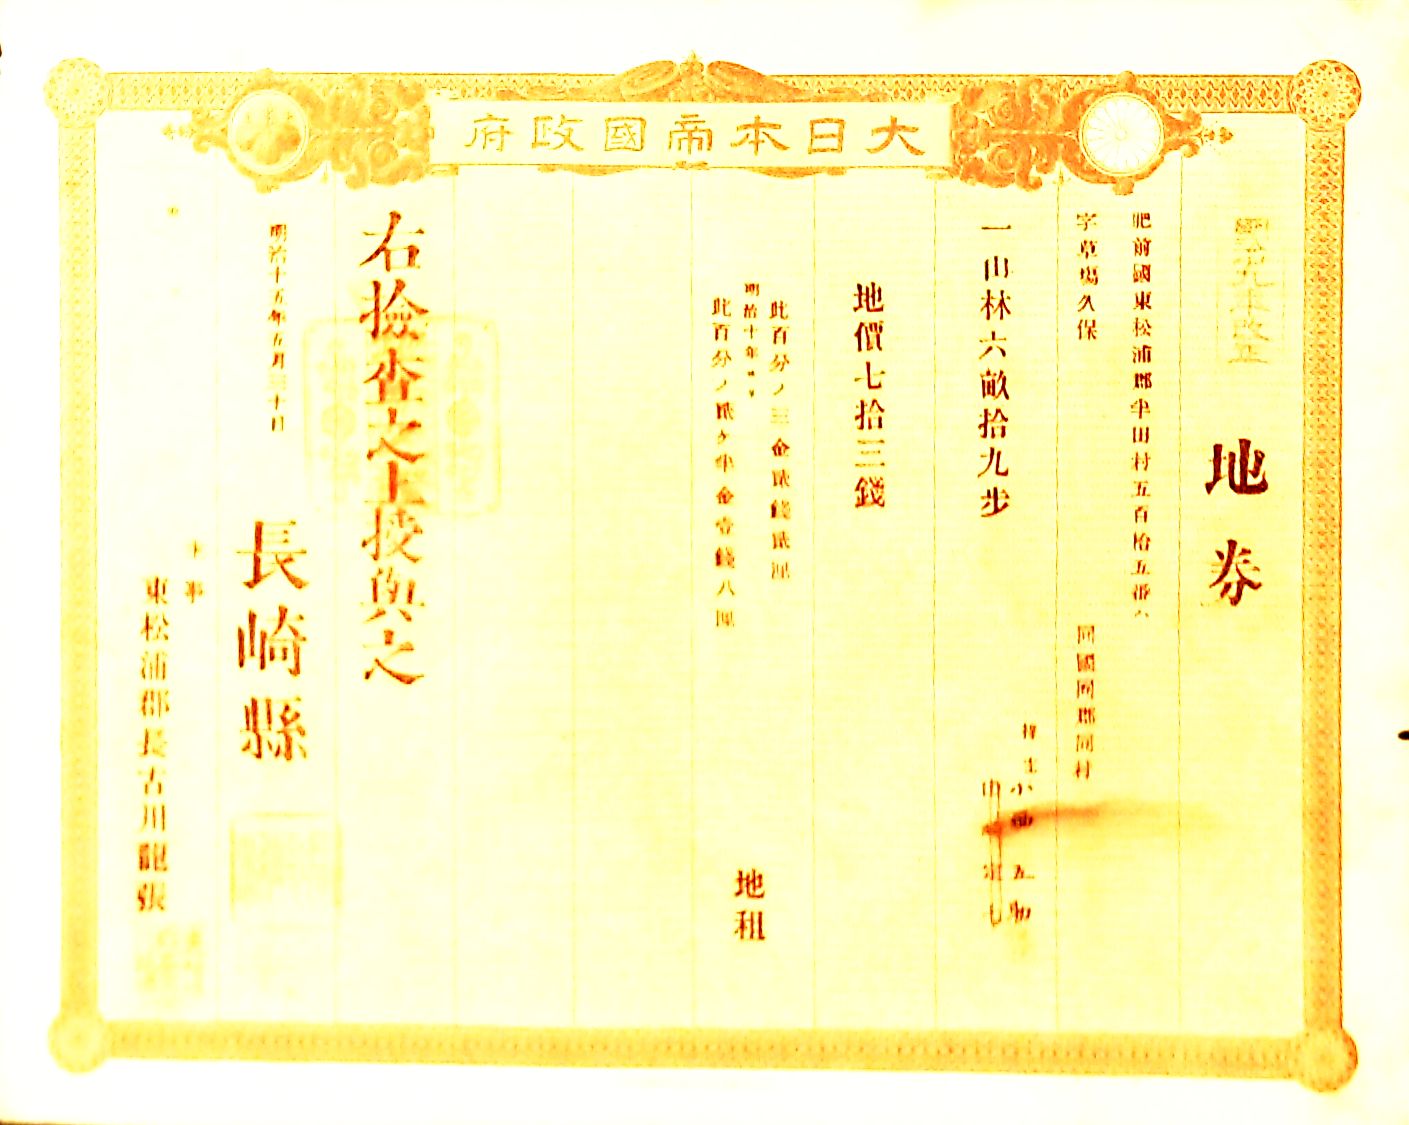 大日本帝國政府
明治九年改正
地券
肥前國東松浦郡半田村五百拾五番
字草場久保
同國同郡同村
一山林六畝拾九步
持主
小 五助
地價七拾三錢
此百分ノ三金貳錢貳厘
明治十年ヨリ
此百分ノ貳ケ半金壹錢八厘
地租
右撿查之上授與之
明治十五年五月三十日
長崎縣
主事
東松浦郡長古川龍張